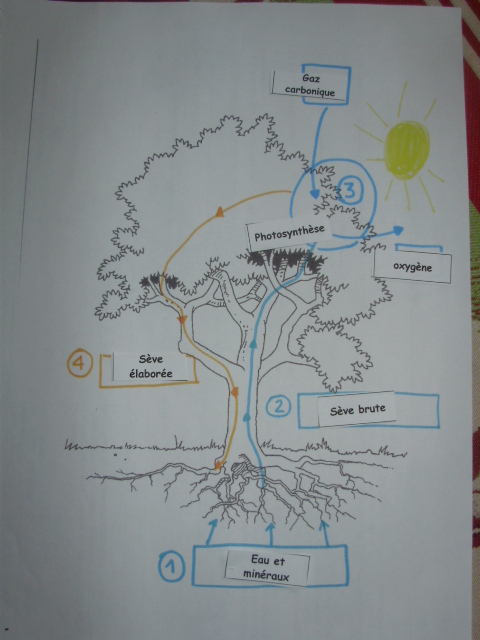 Gaz
carbonique
3
Photosynthèse
oxygène
4
Sève
élaborée
2
Sève brute
1
Eau et
minéraux